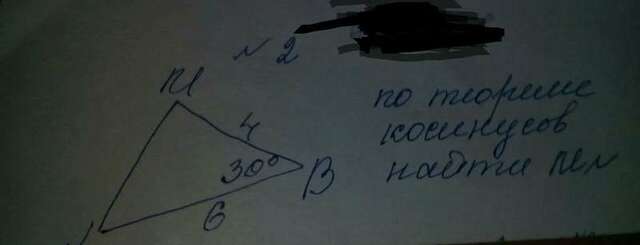 № 2
M
4
30°
B
6
по теореме
косинусов
найти MN